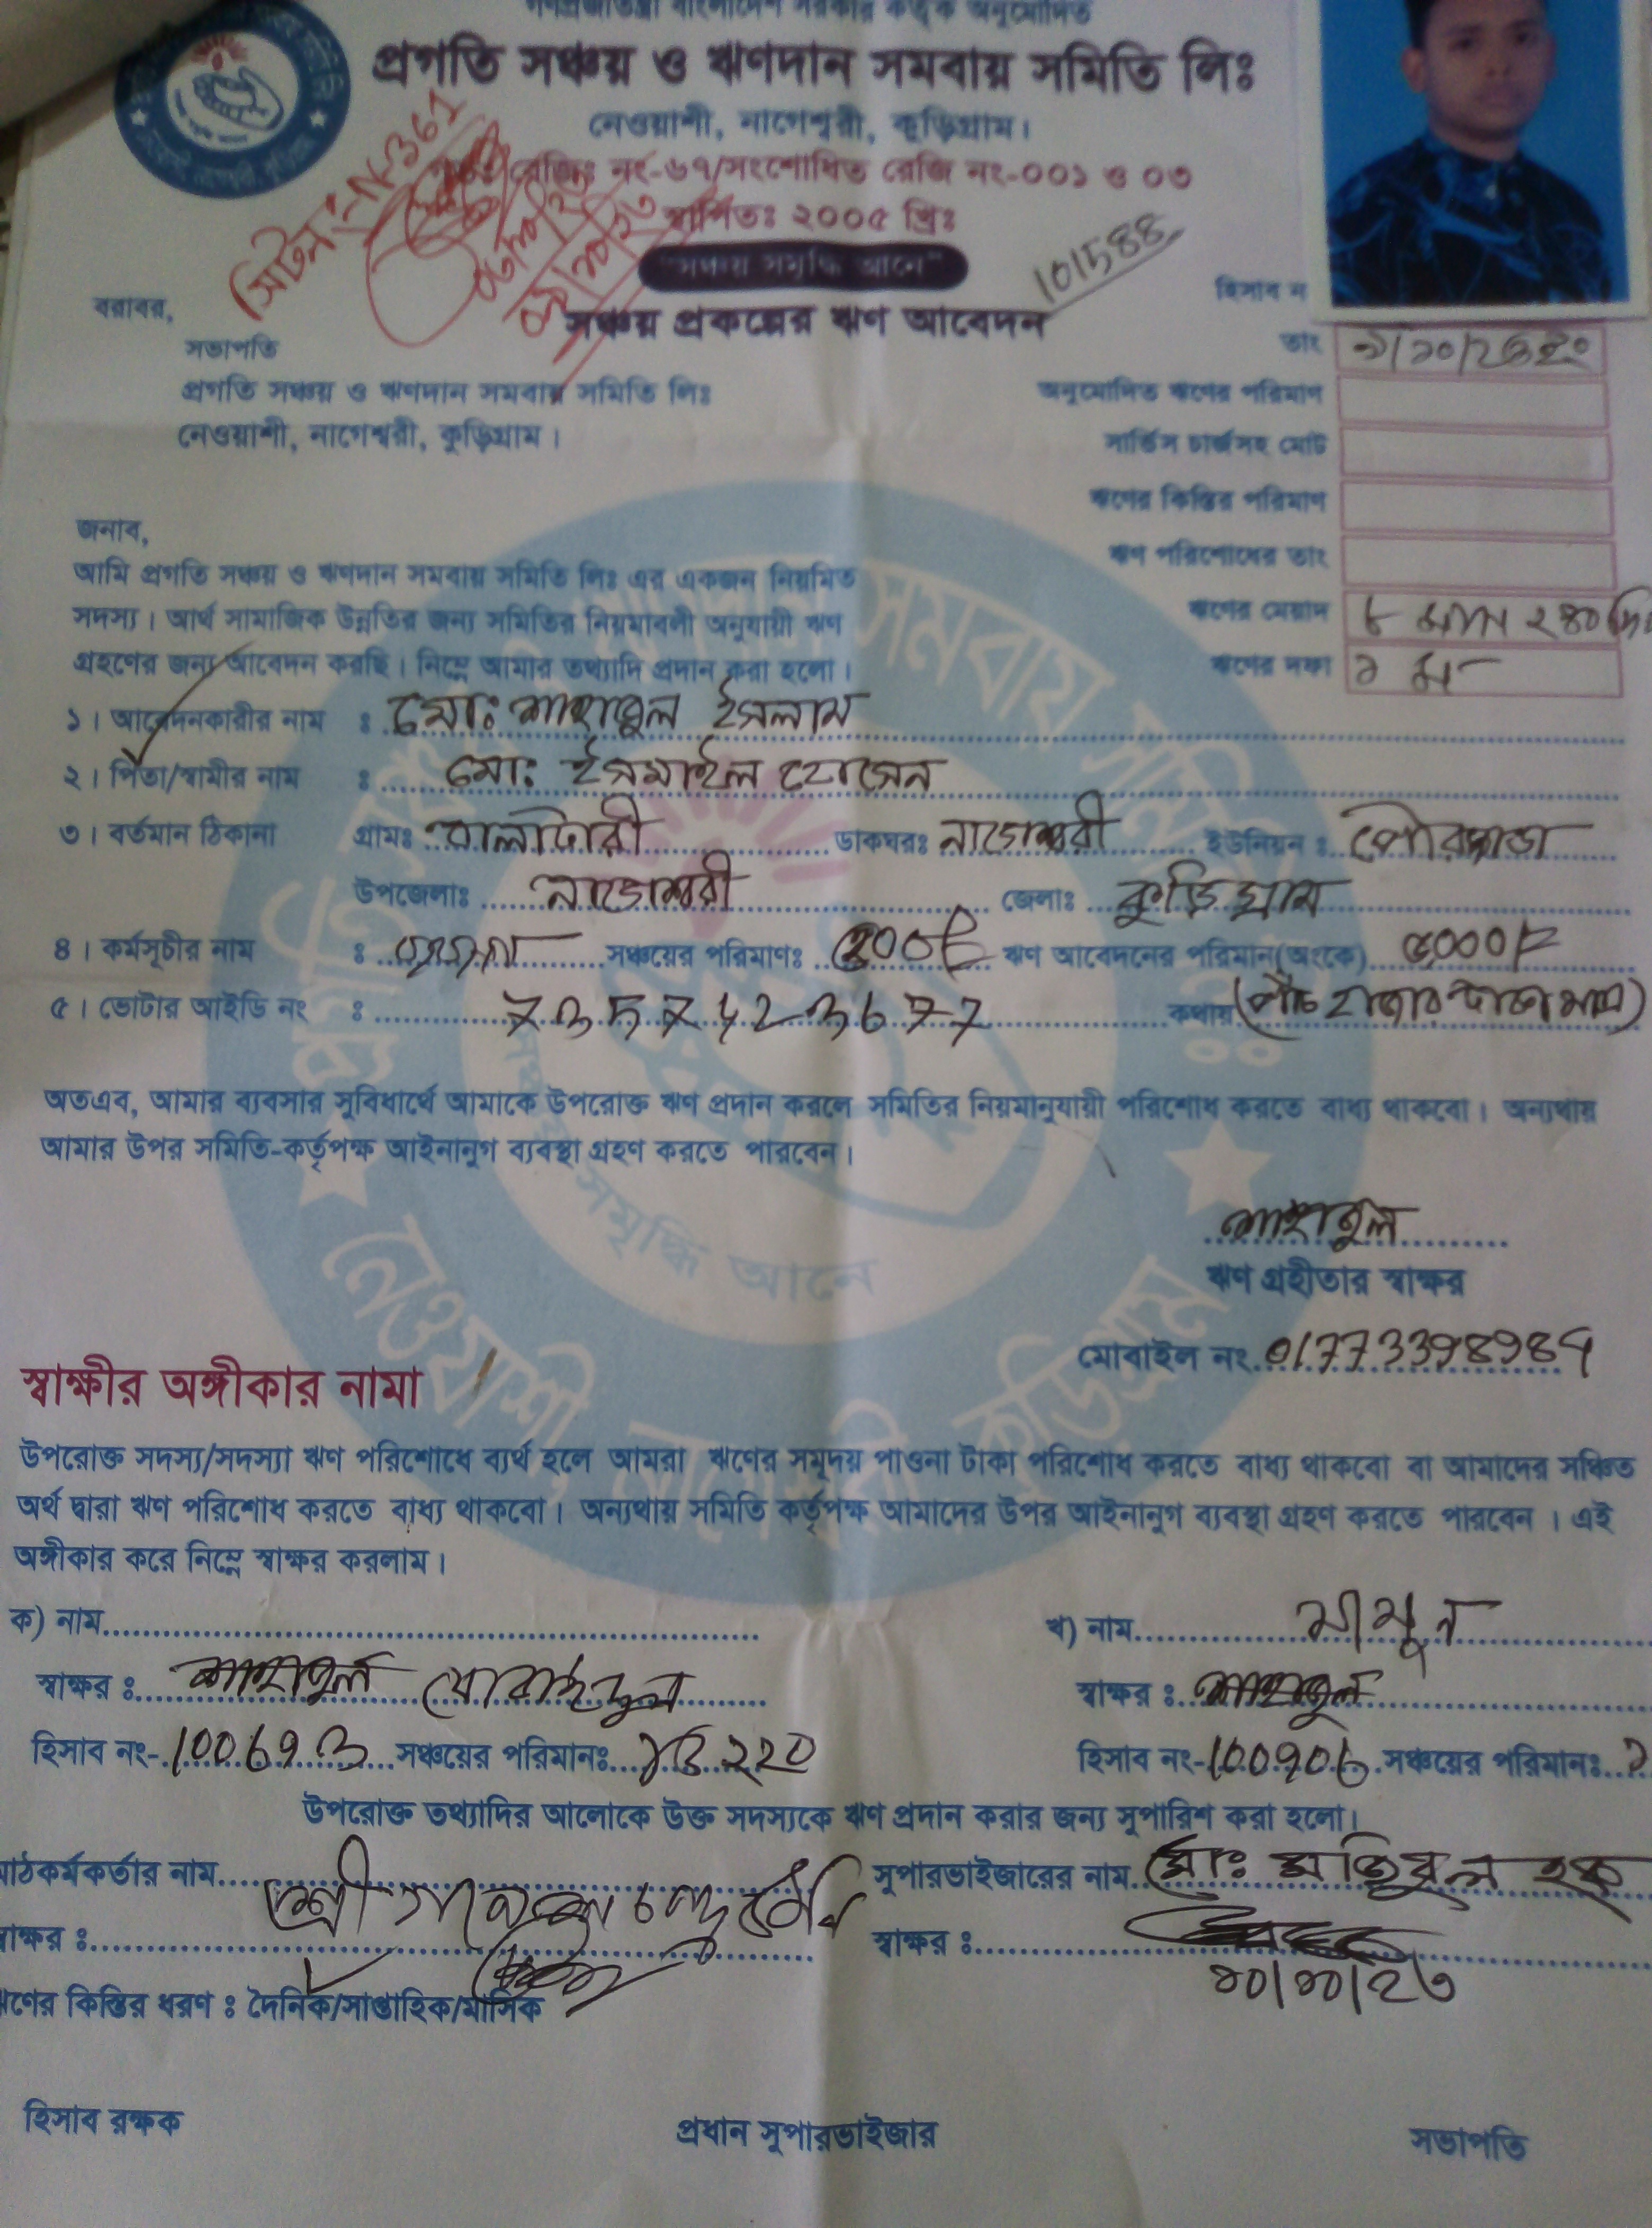 গণপ্রজাতন্ত্রী বাংলাদেশ সরকার কর্তৃক অনুমোদিত
প্রগতি সঞ্চয় ও ঋণদান সমবায় সমিতি লিঃ
নেওয়াশী, নাগেশ্বরী, কুড়িগ্রাম।
রেজিঃ নং-৬৭/সংশোধিত রেজি নং-০০১ ও ০৩
স্থাপিতঃ ২০০৫ খ্রিঃ
"সঞ্চয় সমৃদ্ধি আনে"
101588
সঞ্চয় প্রকল্পের ঋণ আবেদন
হিসাব ন
বরাবর,
সভাপতি
প্রগতি সঞ্চয় ও ঋণদান সমবায় সমিতি লিঃ
নেওয়াশী, নাগেশ্বরী, কুড়িগ্রাম।
তাং
অনুমোদিত ঋণের পরিমাণ
সার্ভিস চার্জসহ মোট
ঋণের কিস্তির পরিমাণ
ঋণ পরিশোধের তাং
ঋণের মেয়াদ ৮ মাস ২৪০ দি
ঋণের দফা ১ ম
জনাব,
আমি প্রগতি সঞ্চয় ও ঋণদান সমবায় সমিতি লিঃ এর একজন নিয়মিত
সদস্য। আর্থ সামাজিক উন্নতির জন্য সমিতির নিয়মাবলী অনুযায়ী ঋণ
গ্রহণের জন্য আবেদন করছি। নিম্নে আমার তথ্যাদি প্রদান করা হলো।
১। আবেদনকারীর নাম : মোঃ শাহাবুল ইসলাম
২। পিতা/স্বামীর নাম : মোঃ ইসমাইল হোসেন
৩। বর্তমান ঠিকানা গ্রামঃ বালাটারী ডাকঘরঃ নাগেশ্বরী ইউনিয়ন : পৌরসভা
উপজেলাঃ নাগেশ্বরী জেলাঃ কুড়িগ্রাম
৪। কর্মসূচীর নাম : ব্যবসা সঞ্চয়ের পরিমাণঃ ঋণ আবেদনের পরিমান(অংকে) ৫০০০/=
৫। ভোটার আইডি নং : 7357423677 কথায় (পাঁচ হাজার টাকা মাত্র)
অতএব, আমার ব্যবসার সুবিধার্থে আমাকে উপরোক্ত ঋণ প্রদান করলে সমিতির নিয়মানুযায়ী পরিশোধ করতে বাধ্য থাকবো। অন্যথায়
আমার উপর সমিতি-কর্তৃপক্ষ আইনানুগ ব্যবস্থা গ্রহণ করতে পারবেন।
শাহাবুল
ঋণ গ্রহীতার স্বাক্ষর
মোবাইল নং
স্বাক্ষীর অঙ্গীকার নামা
উপরোক্ত সদস্য/সদস্যা ঋণ পরিশোধে ব্যর্থ হলে আমরা ঋণের সমূদয় পাওনা টাকা পরিশোধ করতে বাধ্য থাকবো বা আমাদের সঞ্চিত
অর্থ দ্বারা ঋণ পরিশোধ করতে বাধ্য থাকবো। অন্যথায় সমিতি কর্তৃপক্ষ আমাদের উপর আইনানুগ ব্যবস্থা গ্রহণ করতে পারবেন। এই
অঙ্গীকার করে নিম্নে স্বাক্ষর করলাম।
ক) নাম
খ) নাম মামুন
স্বাক্ষর : মোবাইদুল
স্বাক্ষর :
হিসাব নং- সঞ্চয়ের পরিমানঃ
হিসাব নং- সঞ্চয়ের পরিমানঃ
উপরোক্ত তথ্যাদির আলোকে উক্ত সদস্যকে ঋণ প্রদান করার জন্য সুপারিশ করা হলো।
মাঠকর্মকর্তার নাম শ্রী
সুপারভাইজারের নাম মোঃ হক
স্বাক্ষর :
স্বাক্ষর :
১০/১০/২৩
ঋণের কিস্তির ধরণ : দৈনিক/সাপ্তাহিক/মাসিক
হিসাব রক্ষক
প্রধান সুপারভাইজার
সভাপতি